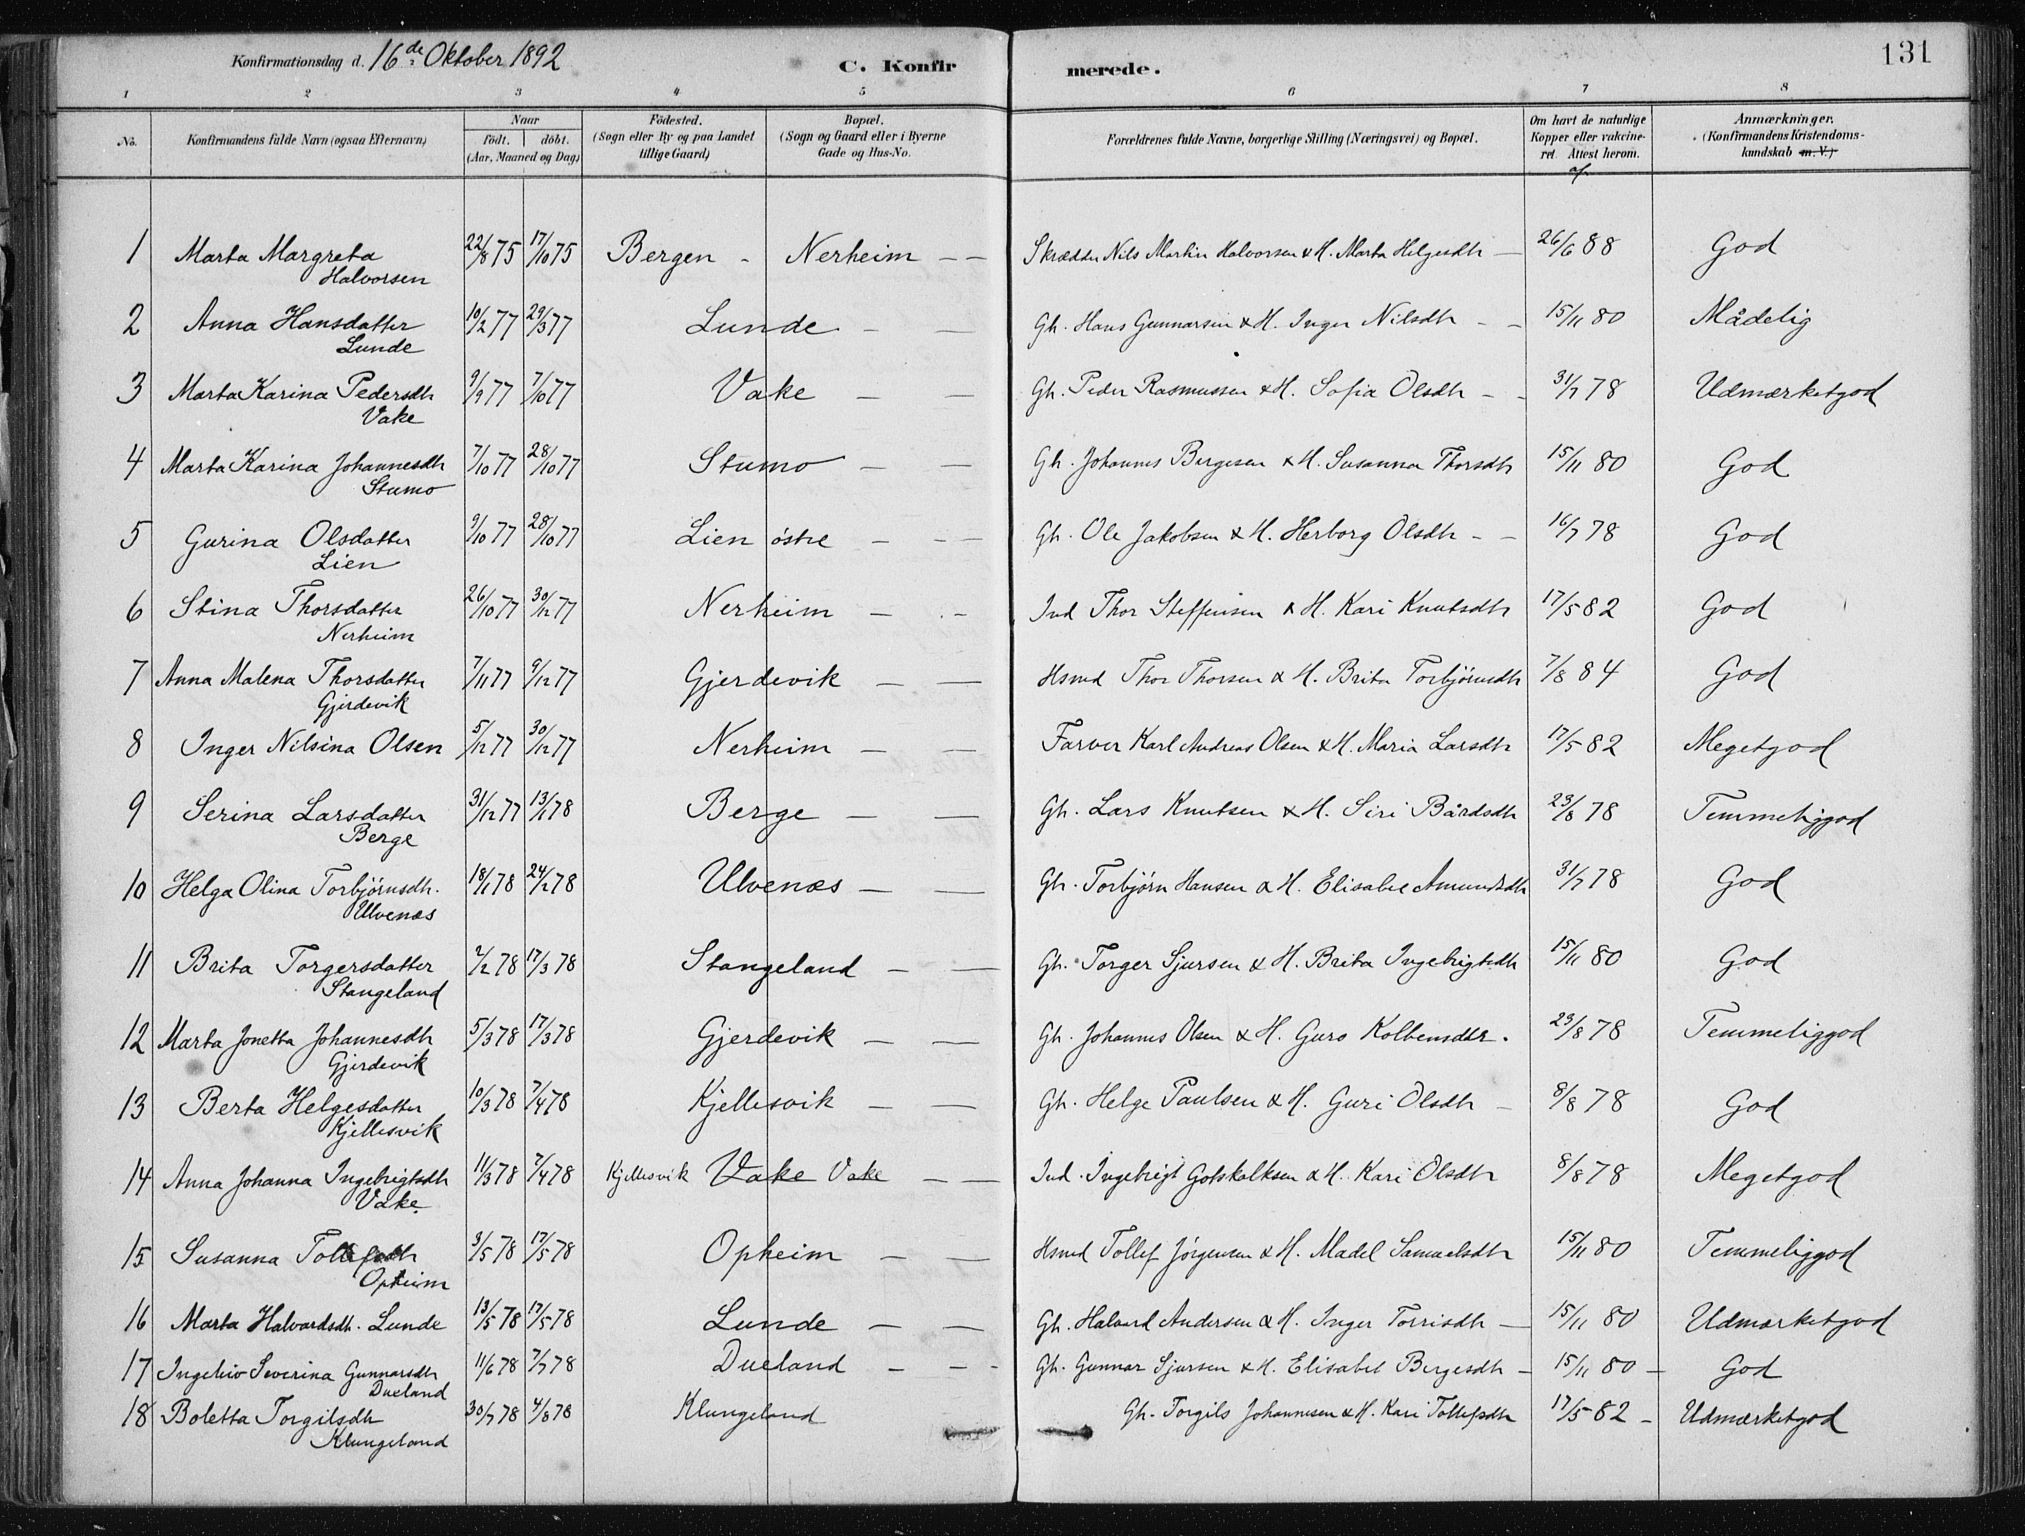 Konfirmationsdag d. 16de Oktober 1892
C. Konfirmerede.
131
1 2 3 4 5 6 7 8
No. Konfirmandens fulde Navn (ogsaa Efternavn) Naar födt. döbt. (Aar, Maaned og Dag) Födested. (Sogn eller By og paa Landet tillige Gaard) Bopæl. (Sogn og Gaard eller i Byerne Gade og Hus-No. Forældrenes fulde Navne, borgerlige Stilling (Næringsvei) og Bopæl. Om havt de naturlige Kopper eller vakcineret Attest herom. af Anmærkninger. (Konfirmandens Kristendomskundskab m.V.)
1 Marta Margreta Halvorsen 22/8 75 17/10 75 Bergen - Nerheim - - Skrædder Nils Martin Halvorsen & H. Marta Helgesdtr — 26/6 88 God
2 Anna Hansdatter Lunde 10/2 77 29/3 77 Lunde - — Gh. Hans Gunnarsen & H. Inger Nilsdtr - - 15/11 80 Mådelig
3 Marta Karina Pedersdtr Vake 9/9 77 7/10 77 Vake — — Gh. Peder Rasmussen & H. Sofia Olsdtr - - 31/7 78 Udmærketgod
4 Marta Karina Johannesdtr Stumo 7/10 77 28/10 77 Stumo — — Gh. Johannes Bergesen & H. Susanna Thorsdtr 15/11 80 God
5 Gurina Olsdatter Lien 9/10 77 28/10 77 Lien östre — - — Gh. Ole Jakobsen & H. Herborg Olsdtr - - 16/7 78 God
6 Stina Thorsdatter Nerheim 26/10 77 30/12 77 Nerheim — - Ind Thor Steffensen & H. Kari Knutsdtr 17/5 82 God
7 Anna Malena Thorsdatter Gjerdevik 7/11 77 9/12 77 Gjerdevik — — Hsmd Thor Thorsen & H. Brita Torbjörnsdtr 7/8 84 God
8 Inger Nilsina Olsen 5/12 77 30/12 77 Nerheim — — Farver Karl Andreas Olsen & H. Maria Larsdtr 17/5 82 Megetgod
9 Serina Larsdatter Berge 31/12 77 13/1 78 Berge — — Gh. Lars Knutsen & H. Siri Bårdsdtr 23/8 78 Temmeliggod
10 Helga Olina Torbjörnsdtr. Ulvenæs 18/1 78 24/2 78 Ulvenæs — — Gh. Torbjörn Hansen & H. Elisabet Amundsdtr 31/7 78 God
11 Brita Torgersdatter Stangeland 2/2 78 17/3 78 Stangeland — — Gh. Torger Sjursen & H. Brita Ingebrigtsdtr 15/11 80 God
12 Marta Jonetta Johannesdtr Gjerdevik 5/3 78 17/3 78 Gjerdevik — — Gh. Johannes Olsen & H. Guro Kolbensdtr. 23/8 78 Temmeliggod
13 Berta Helgesdatter Kjellesvik 10/3 78 7/4 78 Kjellesvik — — Gh. Helge Paulsen & H. Guri Olsdtr - 8/8 78 God
14 Anna Johanna Ingebrigtsdtr Vake 11/3 78 7/4 78 Kjellesvik Vake Vake — — Ind. Ingebrigt Gotskalksen & H. Kari Olsdtr 8/8 78 Megetgod
15 Susanna Tollefsdtr Opheim 3/5 78 17/5 78 Opheim — — Hsmd Tollef Jörgensen & H. Madel Samuelsdtr 15/11 80 Temmeliggod
16 Marta Halvardsdtr. Lunde 13/5 78 17/5 78 Lunde — — Gh. Halvard Andersen & H. Inger Torrisdtr — 15/11 80 Udmærketgod
17 Ingeleiv Severina Gunnarsdtr Dueland 11/6 78 7/7 78 Dueland — — - Gh. Gunnar Sjursen & H. Elisabet Bergesdtr - 15/11 80 — God
18 Boletta Torgilsdtr Klungeland 30/7 78 4/8 78 Klungeland Gh. Torgils Johannesen & H. Kari Tollefsdtr 17/5 82 - Udmærketgod